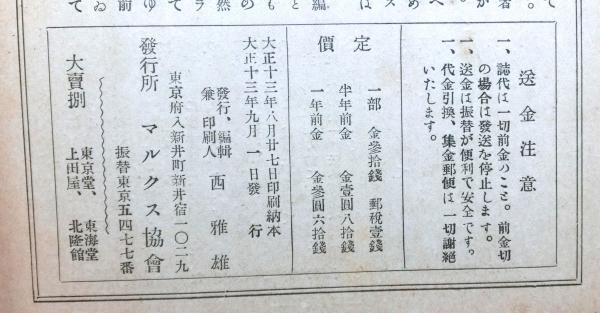 送金注意
一、誌代は一切前金のこと。前金切
の場合は發送を停止します。
一、送金は振替が便利で安全です。
一、代金引換、集金郵便は一切謝絶
いたします。
定價
一部 金參拾錢 郵稅壹錢
半年前金 金壹圓八拾錢
一年前金 金參圓六拾錢
大正十三年八月廿七日印刷納本
大正十三年九月一日發行
發行、編輯
兼印刷人 西雅雄
東京府入新井町新井宿一〇二九
發行所 マルクス協會
振替東京五四七七番
大賣捌
東京堂、東海堂
上田屋、北隆館